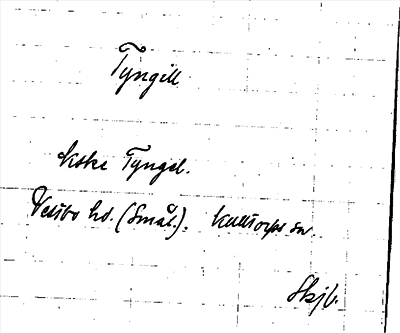 Tyngill
kske Tyngel.
Västbo hd. (Smål.). Kulltorps sn.
Skjb.